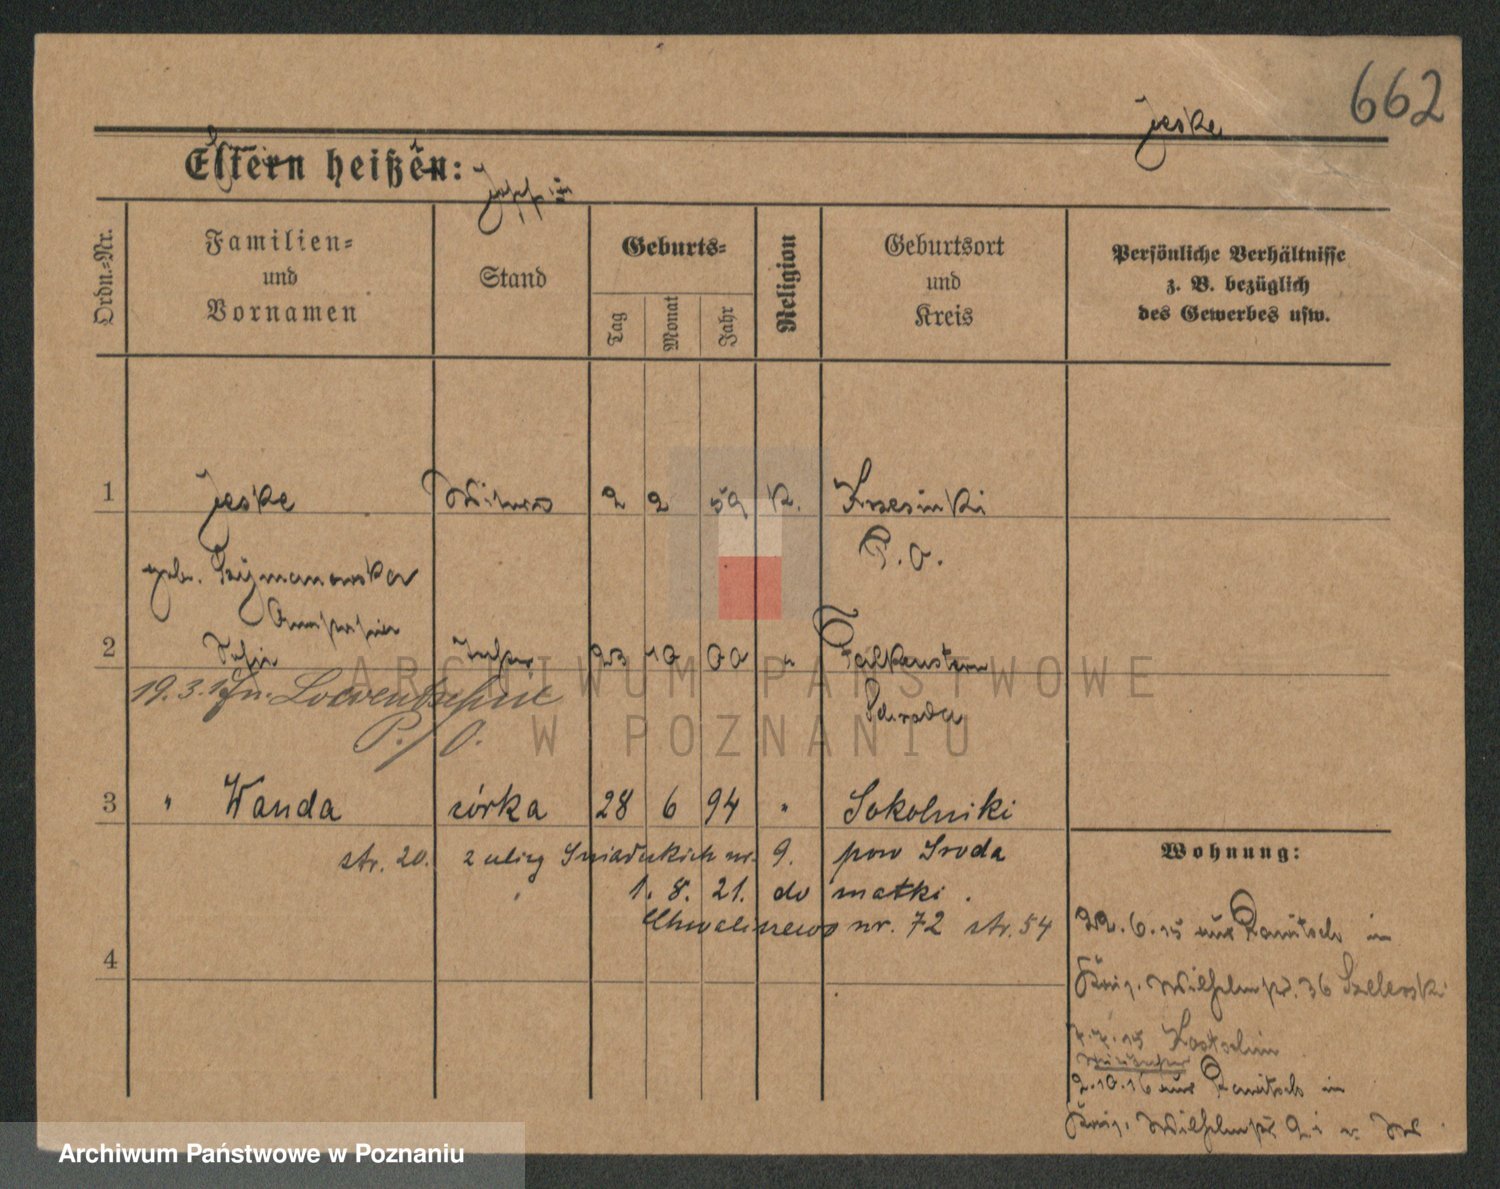 662
Jeske
Eltern heißen:
Ordn.-Nr.
Familien-
und
Vornamen
Stand
Geburts-
Tag
Monat
Jahr
Religion
Geburtsort
und
Kreis
Persönliche Verhältnisse
z. B. bezüglich
des Gewerbes usw.
1 Jeske Witwe 2 2 59 K. Krzesinki
P. O.
geb. Szymanowska
2 23 10 00 " Falkenstein
Schroda
19. 3. Loewentschine
P./O.
3 " Wanda córka 28 6 94 " Sokolniki
str. 20. z ulicy Śniadeckich nr. 9. pow Środa
1. 8. 21. do matki.
Chwaliszewo nr. 72 str. 54
4
Wohnung:
22. 6. 15 aus Rawitsch in
König. Wilhelmstr. 36 Szelerski
7. 7. 15 Kostschin
2. 10. 16 aus Rawitsch in
König. Wilhelmstr.
ARCHIWUM PAŃSTWOWE
W POZNANIU
Archiwum Państwowe w Poznaniu